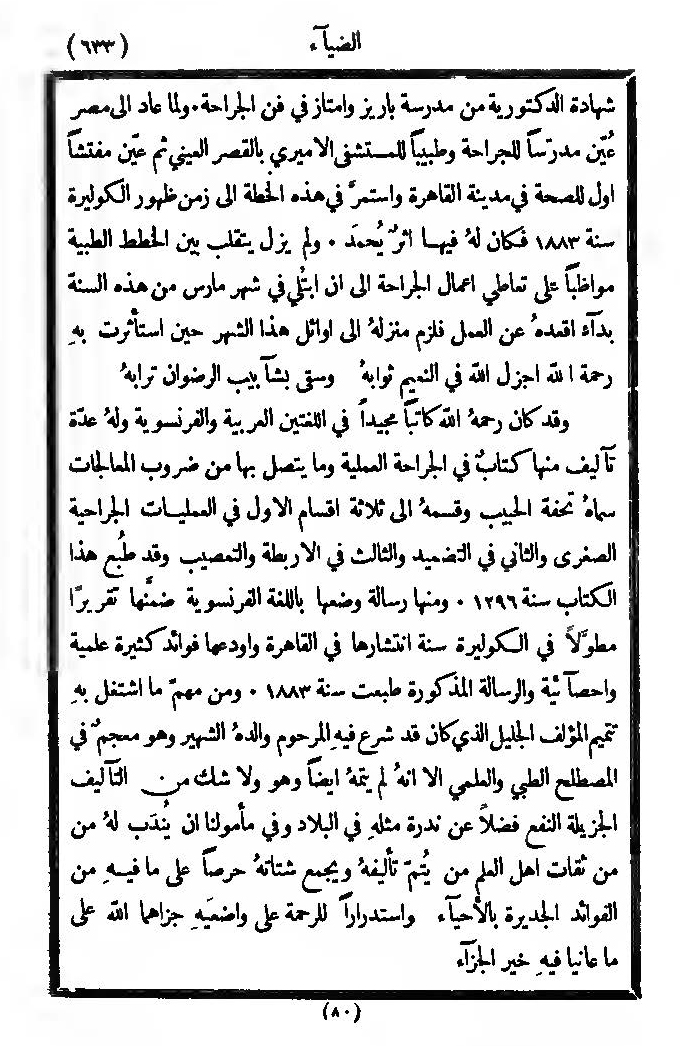 الضيآء (٦٣٣)
شهادة الدكتورية من مدرسة باريز وامتاز في فن الجراحة ٠ ولما عاد الى مصر
عُيّن مدرّساً للجراحة وطبيباً للمستشفى الاميري بالقصر العيني ثم عيّن مفتشاً
اول للصحة في مدينة القاهرة واستمرّ في هذه الخطة الى زمن ظهور الكوليرة
سنة ١٨٨٣ فكان لهُ فيها اثرٌ يُحمَد ٠ ولم يزل يتقلب بين الخطط الطبية
مواظباً على تعاطي اعمال الجراحة الى ان ابتُلي في شهر مارس من هذه السنة
بدآء اقعدهُ عن العمل فلزم منزلهُ الى اوائل هذا الشهر حين استأثرت بهِ
رحمة الله اجزل الله في النعيم ثوابهُ وسقى بشآبيب الرضوان ترابهُ
وقد كان رحمهُ الله كاتباً مجيداً في اللغتين العربية والفرنسوية ولهُ عدّة
تآليف منها كتابٌ في الجراحة العملية وما يتصل بها من ضروب المعالجات
سماهُ تحفة الحبيب وقسمهُ الى ثلاثة اقسام الاول في العمليات الجراحية
الصغرى والثاني في التضميد والثالث في الاربطة والتعصيب وقد طُبع هذا
الكتاب سنة ١٢٩٦ ٠ ومنها رسالة وضعها باللغة الفرنسوية ضمَّنها تقريرًا
مطوَّلاً في الكوليرة سنة انتشارها في القاهرة واودعها فوائد كثيرة علمية
واحصآئية والرسالة المذكورة طبعت سنة ١٨٨٣ ٠ ومن مهمّ ما اشتغل بهِ
تتميم المؤلف الجليل الذي كان قد شرع فيهِ المرحوم والدهُ الشهير وهو معجمٌ في
المصطلح الطبي والعلمي الا انهُ لم يتمّهُ ايضاً وهو ولا شك من التآليف
الجزيلة النفع فضلاً عن ندرة مثلهِ في البلاد وفي مأمولنا ان يُندَب لهُ من
من ثقات اهل العلم من يُتمّ تأليفهُ ويجمع شتاتهُ حرصاً على ما فيهِ من
الفوائد الجديرة بالاحيآء واستدراراً للرحمة على واضعَيهِ جزاهما الله على
ما عانيا فيهِ خير الجزآء
(٨٠)